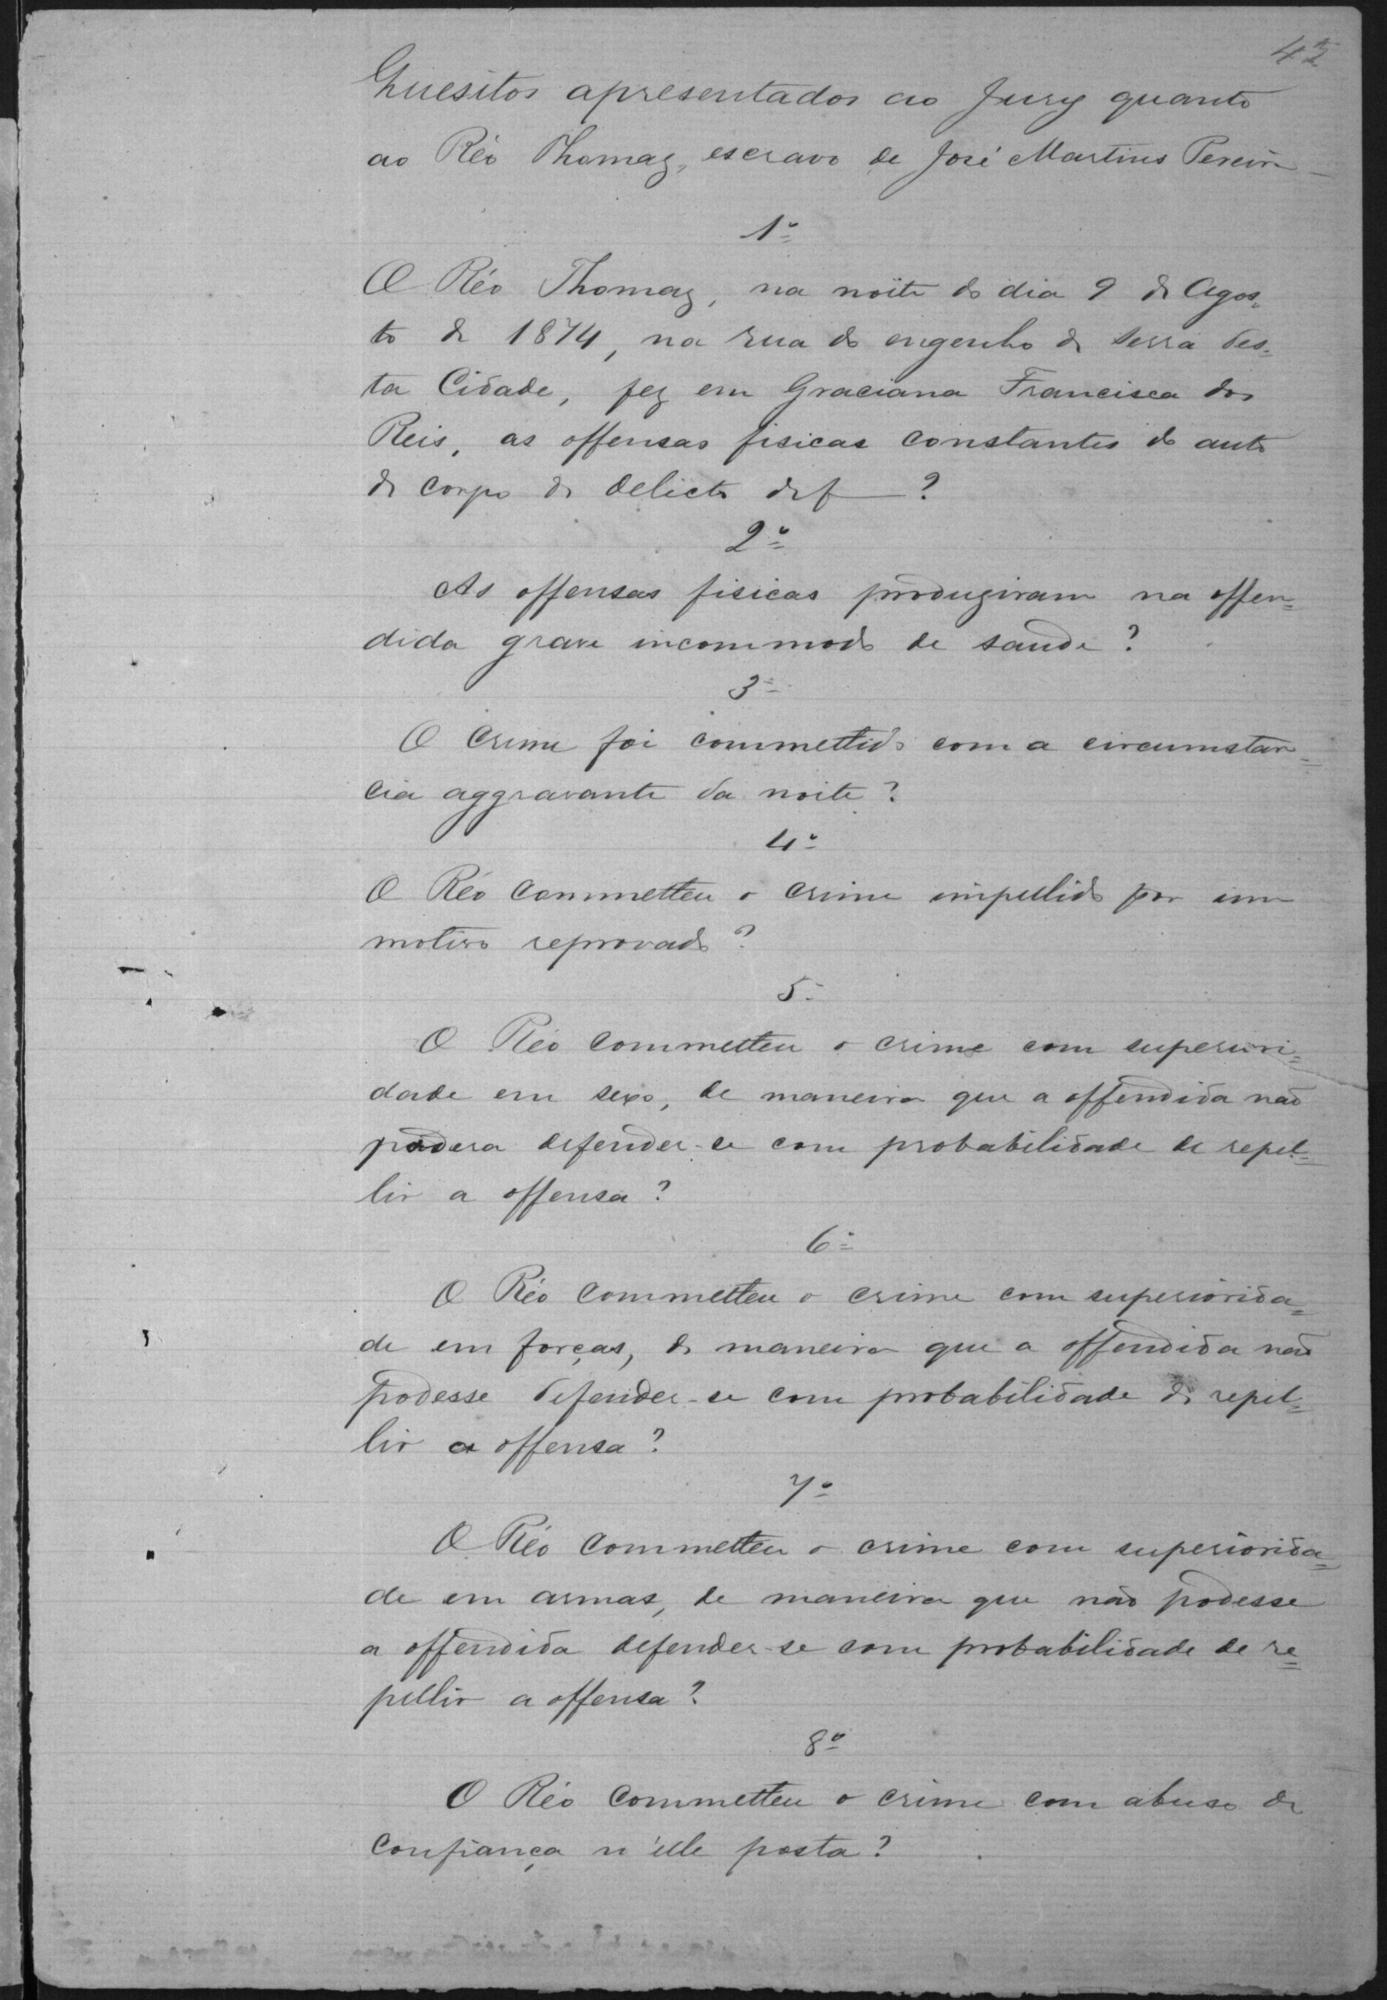 42
Quesitos apresentados ao Jury quanto
ao Réo Thomaz, escravo de José Martins Pereira
1º
O Réo Thomaz, na noite do dia 9 de Agos-
to de 1874, na rua do engenho de serra des-
ta Cidade, fez em Graciana Francisca dos
Reis, as offensas fisicas constantes do auto
de corpo de delicto de f ?
2º
As offensas fisicas produziram na offen-
dida grave incommodo de saude?
3º
O crime foi commettido com a circumstan-
cia aggravante da noite?
4º
O Réo commetteu o crime impellido por um
motivo reprovado?
5º
O Réo commetteu o crime com superiori-
dade em sexo, de maneira que a offendida não
podera defender-se com probabilidade de repel-
lir a offensa?
6º
O Réo commetteu o crime com superiorida-
de em forças, de maneira que a offendida não
podesse defender-se com probabilidade de repel-
lir a offensa?
7º
O Réo commetteu o crime com superiorida-
de em armas, de maneira que não podesse
a offendida defender-se com probabilidade de re-
pellir a offensa?
8º
O Réo commetteu o crime com abuso de
confiança n'elle posta?